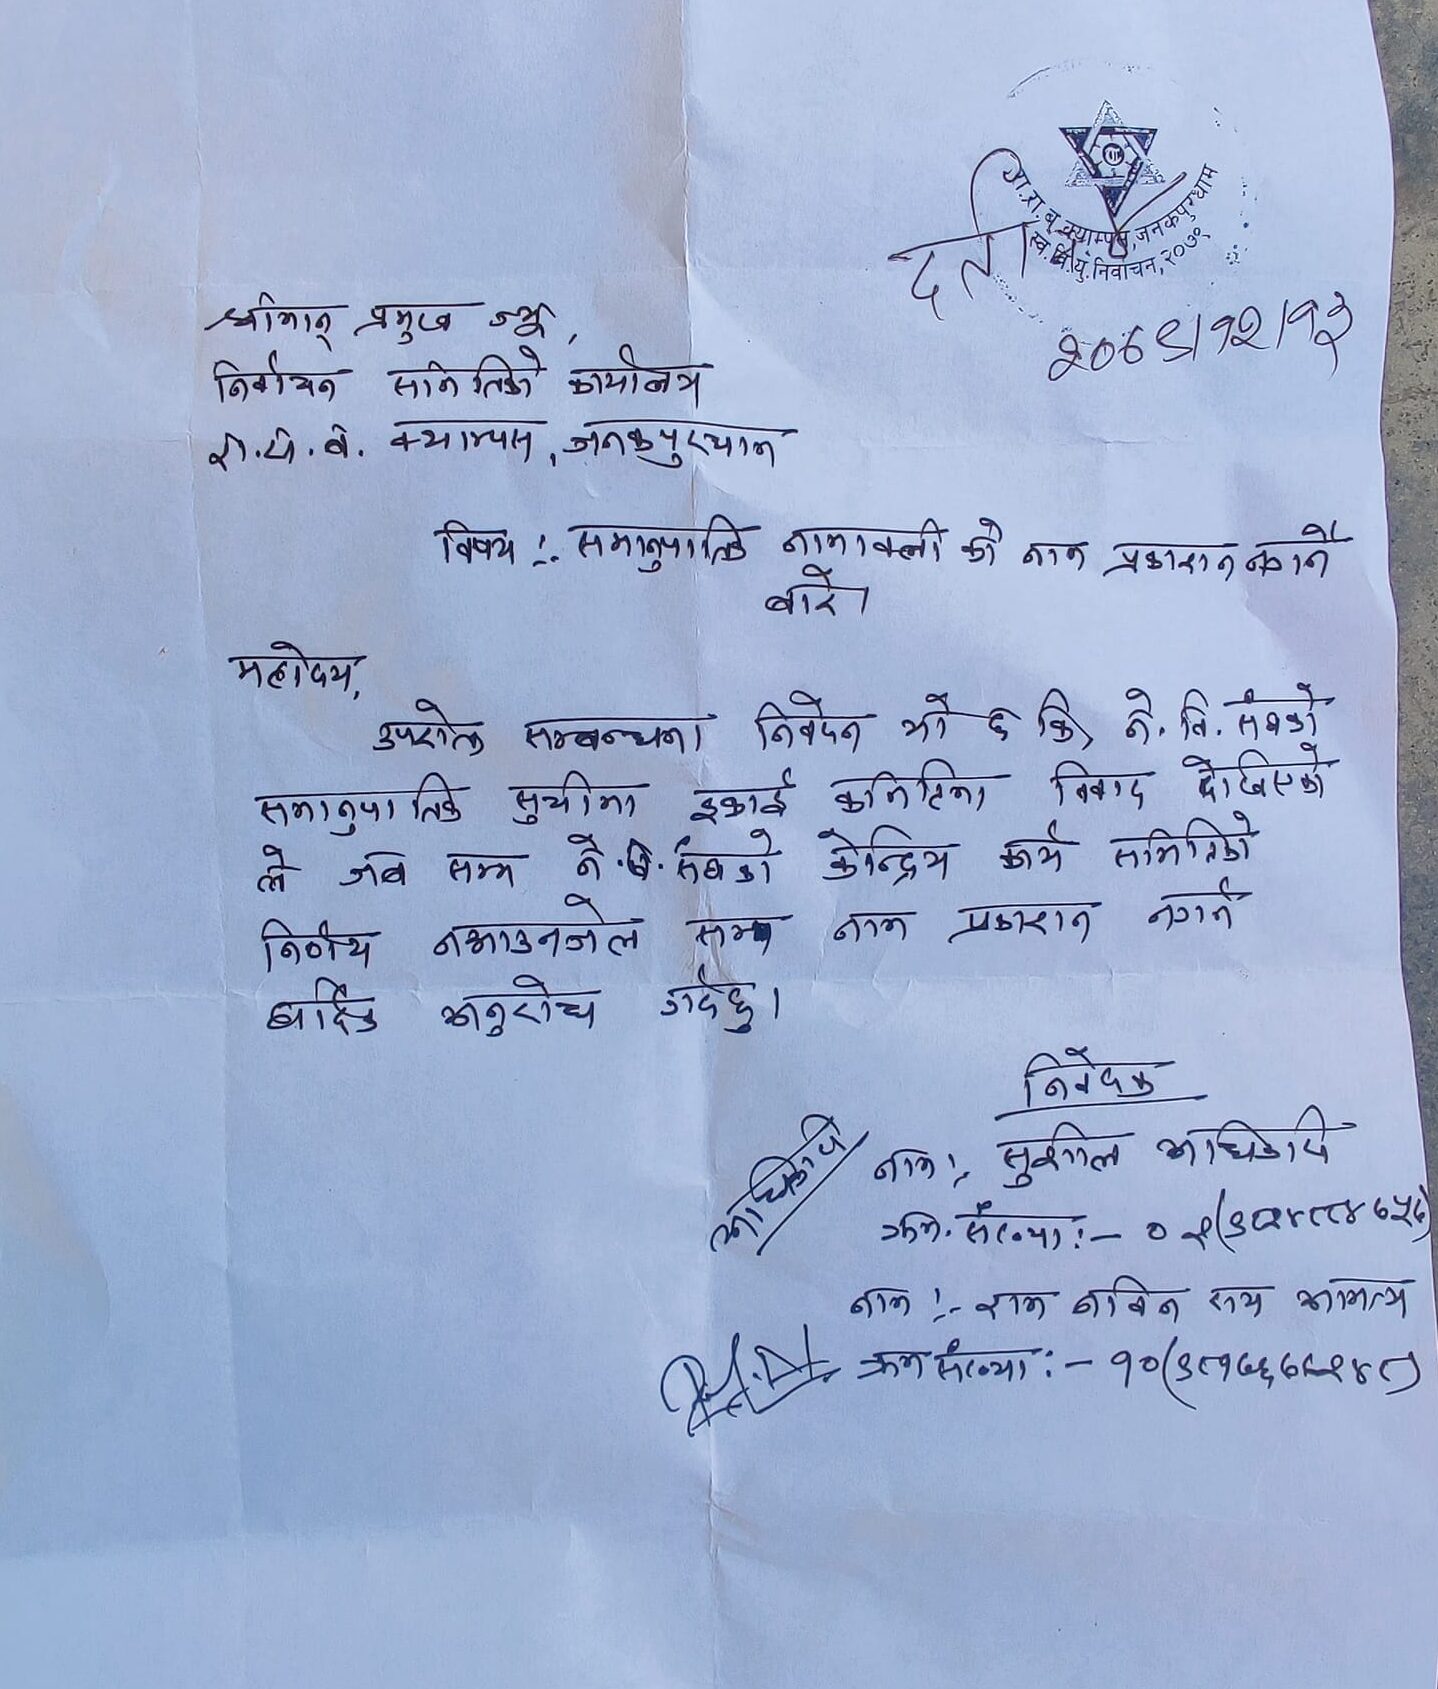 रा.रा.ब.क्याम्पस,जनकपुरधाम
स्व.वि.यु.निर्वाचन,२०७९
दर्ता
२०७९/१२/१३
श्रीमान् प्रमुख ज्यू,
निर्वाचन समितिको कार्यालय
रा.रा.ब. क्याम्पस, जनकपुरधाम
विषय :- समानुपातिक नामावली को नाम प्रकाशन नगर्ने
बारे।
महोदय,
उपरोक्त सम्बन्धमा निवेदन यो छ कि, ने.वि.संघको
समानुपातिक सुचीमा इकाई कमिटिमा विवाद देखिएको
ले जब सम्म ने.वि.संघको केन्द्रिय कार्य समितिको
निर्णय नआउनजेल सम्म नाम प्रकाशन नगर्न
हार्दिक अनुरोध गर्दछु।
निवेदक
नाम:- सुशील अधिकारी
अधिकारी
क्रम.संख्या:- ०२
नाम:- राम नविन राय अमात्य
क्रम संख्या:- १०